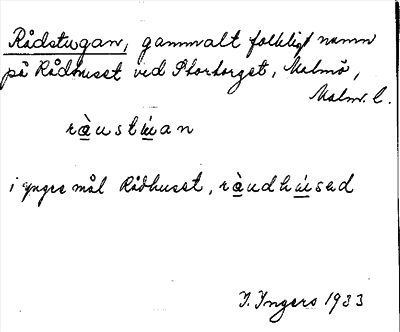 Rådstugan, gammalt folkligt namn
på Rådhuset ved Stortorget, Malmö,
Malm. C.
ràustu̇an
i yngre mål Rådhuset, ràudhu̇sed
I. Ingers 1933